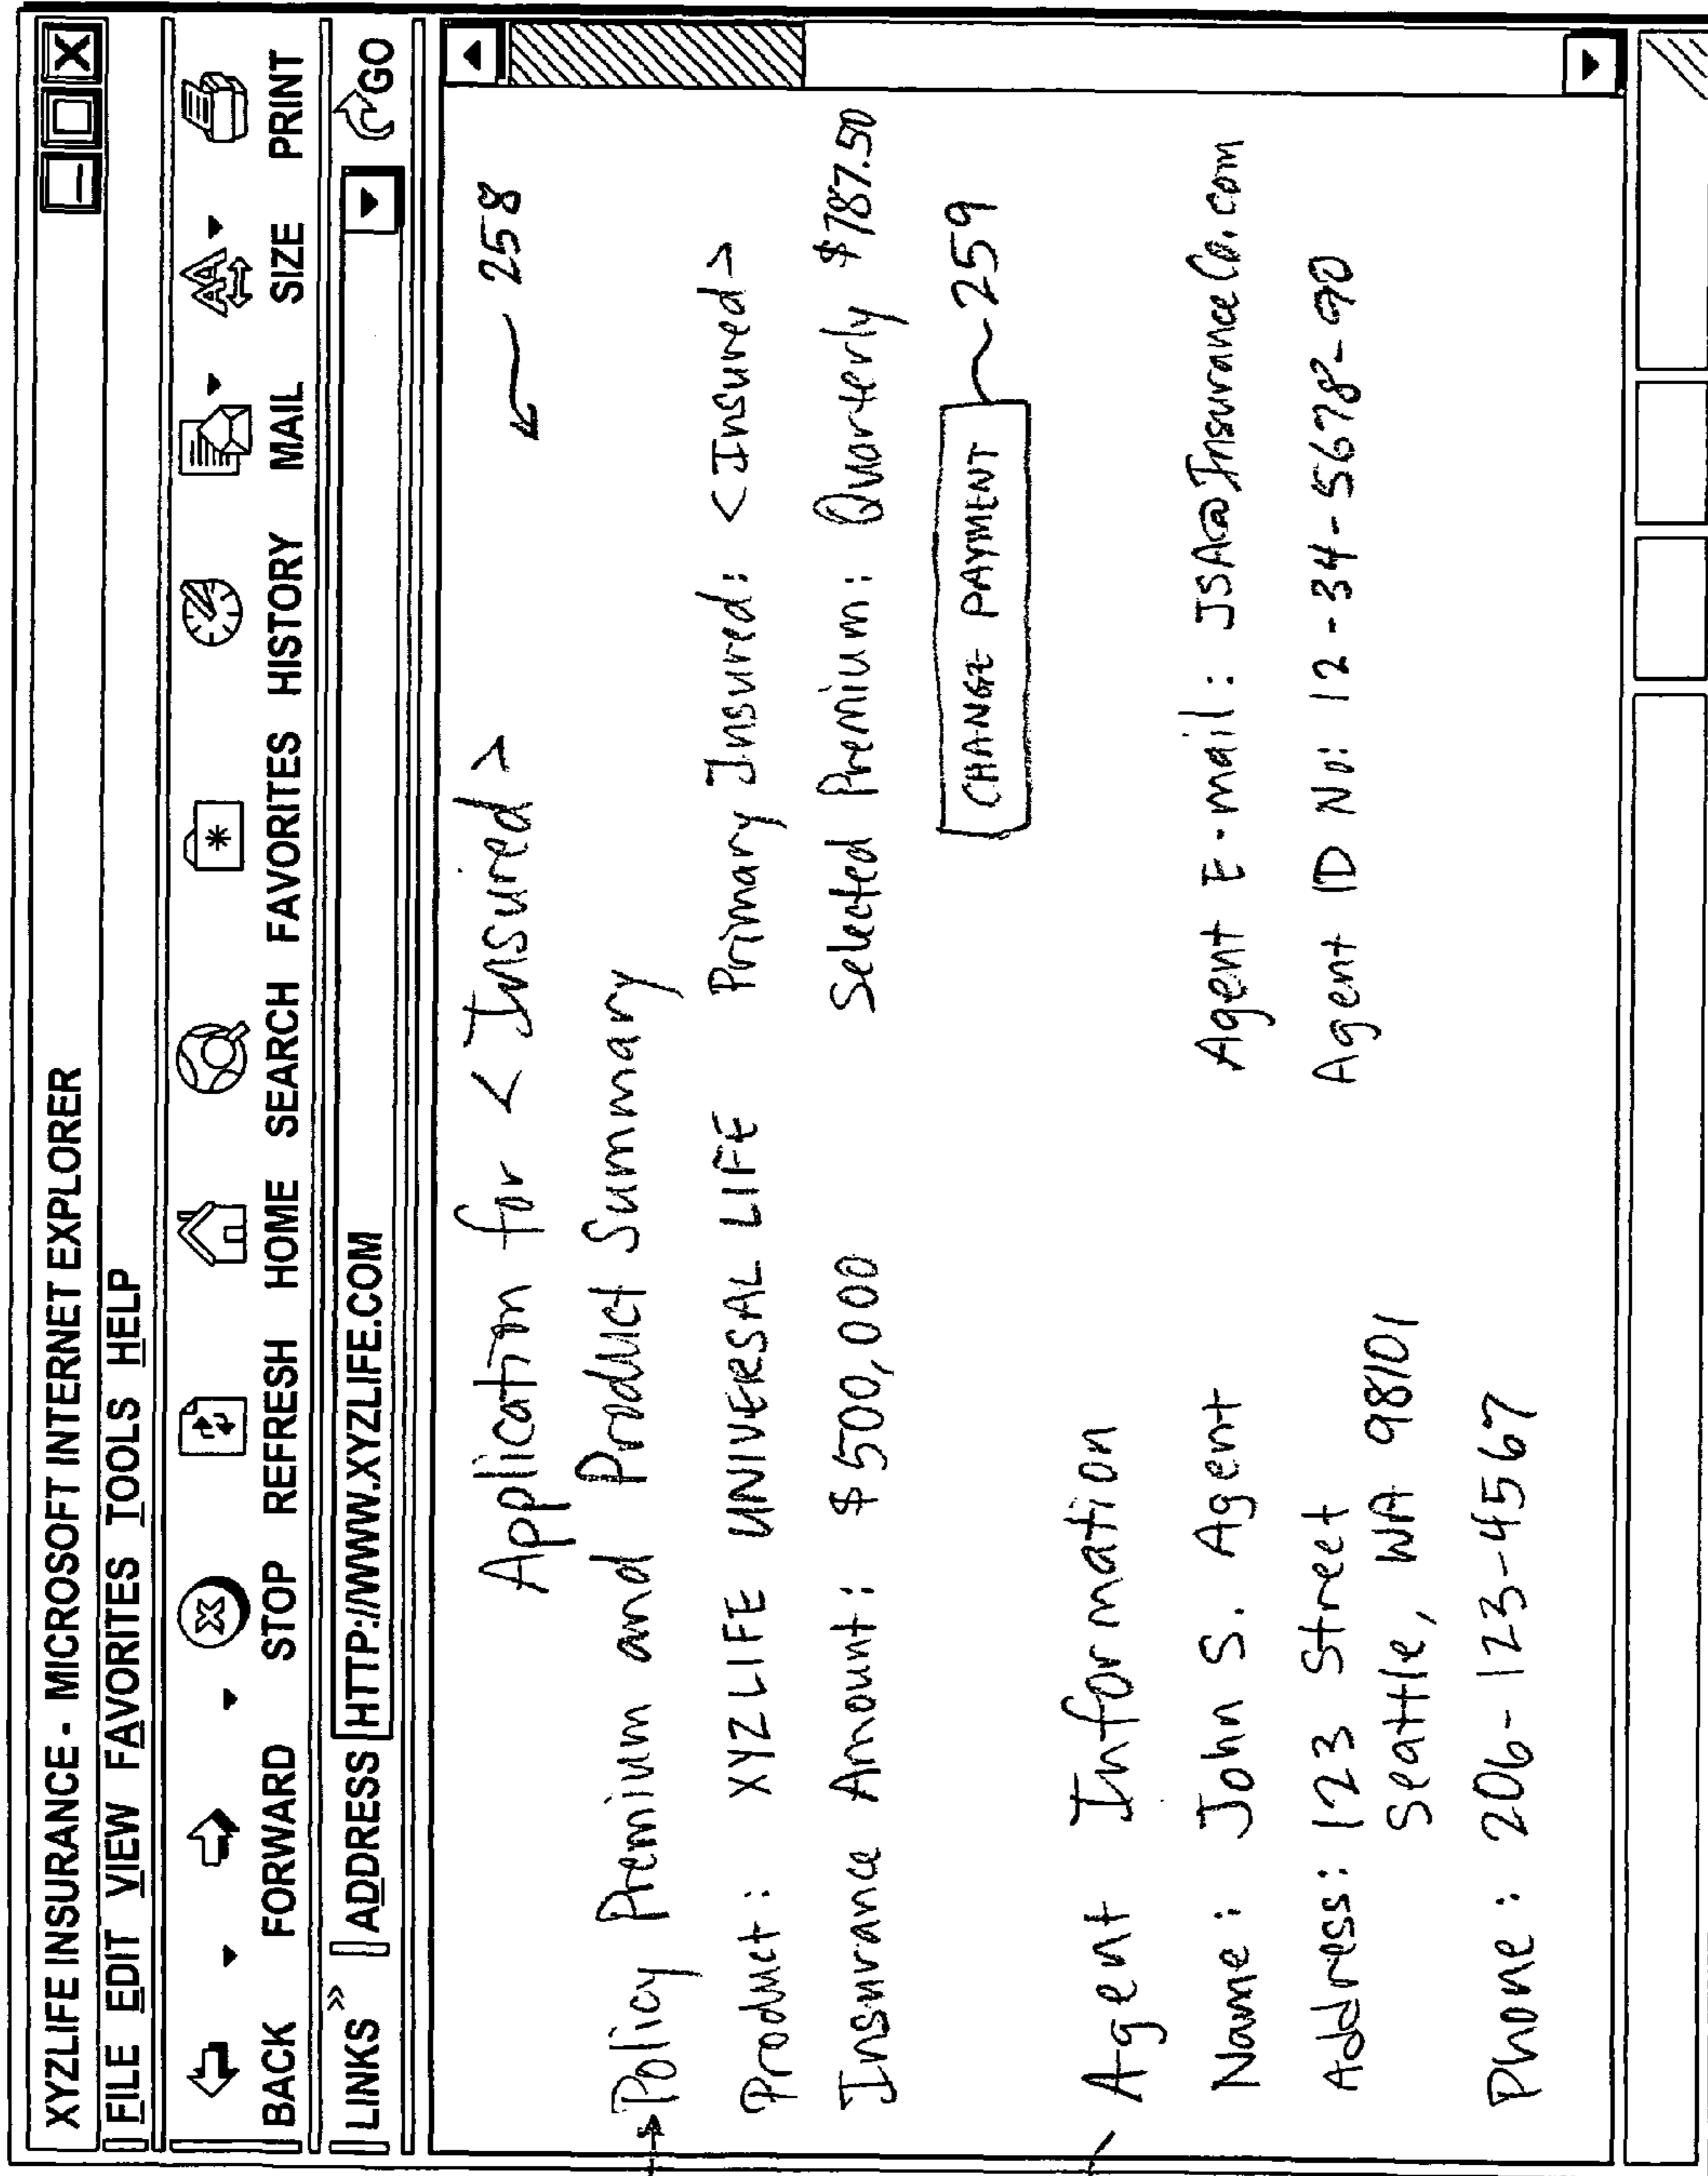 XYZLIFE INSURANCE - MICROSOFT INTERNET EXPLORER
FILE EDIT VIEW FAVORITES TOOLS HELP
BACK FORWARD STOP REFRESH HOME SEARCH FAVORITES HISTORY MAIL SIZE PRINT
LINKS » ADDRESS HTTP://WWW.XYZLIFE.COM GO
Application for <Insured> 258
Policy Premium and Product Summary
Product: XYZ LIFE UNIVERSAL LIFE Primary Insured: <Insured>
Insurance Amount: $500,000 Selected Premium: Quarterly $787.50
CHANGE PAYMENT 259
Agent Information
Name: John S. Agent Agent E-mail: JSA@InsuranceCo.com
Address: 123 Street Agent ID No: 12-34-5678-90
Seattle, WA 98101
Phone: 206-123-4567